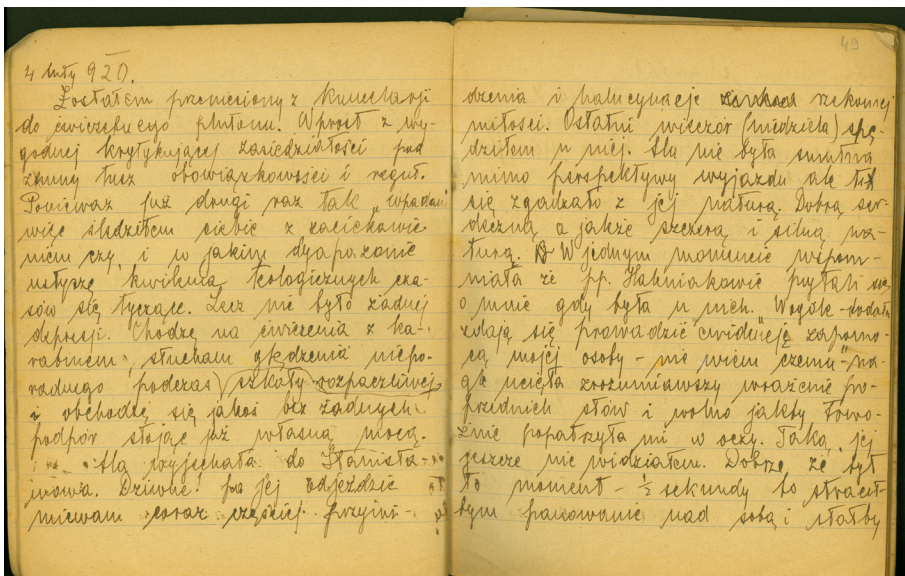 4 luty 920.
Zostałem przeniesiony z Kancelarji
do ćwiczebnego plutonu. Wprost z wy-
godnej krytykującej zasiedziałości pod
zimny tusz obowiązkowości i reguł.
Ponieważ już drugi raz tak "wpadam"
więc śledziłem siebie z zaciekawie
niem czy, i w jakim dyapazonie
usłyszę kwilenia teologicznych cza-
sów się tyczące. Lecz nie było żadnej
depresji. Chodzę na ćwiczenia z ka-
rabinem, słucham ględzenia niepo-
radnego podczas szkoły rozpaczliwej
i obchodzę się jakoś bez żadnych
podpór stojąc już własną mocą.
Ala wyjechała do Stanisła-
wowa. Dziwne! po jej odjeździe
miewam coraz częściej przywi-
49
dzenia i halucynacje rzekomej
miłości. Ostatni wieczór (niedziela) spę
dziłem u niej. Ala nie była smutna
mimo perspektywy wyjazdu ale to
się zgadzało z jej naturą. Dobrą ser-
deczną a jakże szczerą i silną na-
turą. W jednym momencie wspom-
niała że pp. Hahniakowie pytali się
o mnie gdy była u nich. Wogóle - dodała
zdają się prowadzić ewidencję zapomo-
cą mojej osoby - nie wiem czemu" - na-
gle ucięła zrozumiawszy wrażenie po-
przednich słów i wolno jakby
popatrzyła mi w oczy. Taką jej
jeszcze nie widziałem. Dobrze że był
to moment - ½ sekundy bo stracił-
bym panowanie nad sobą i stałby